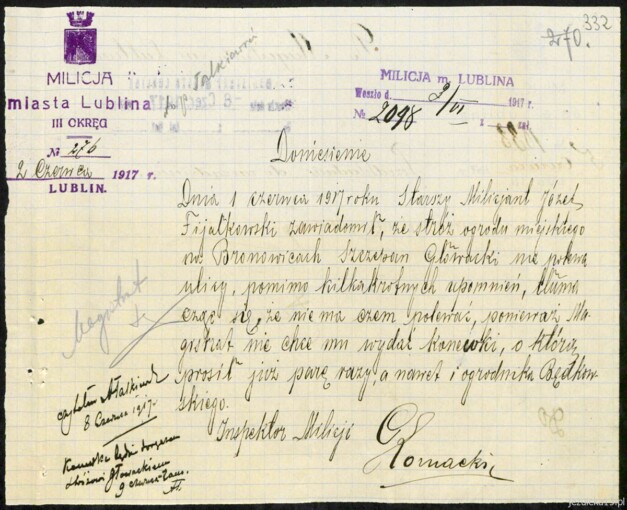 332
270.
MILICJA
miasta Lublina
III OKRĘG
№ 276
2 Czerwca 1917 r.
LUBLIN.
MILICJA m. LUBLINA
Weszło d. 2/VI 1917 r.
№ 2098
Doniesienie
Dnia 1 czerwca 1917 roku Starszy Milicjant Józef
Fijałkowski zawiadomił, że stróż ogrodu miejskiego
na Bronowicach Szczepan Głowacki nie polewa
ulicy, pomimo kilkakrotnych upomnień, tłuma
cząc się, że nie ma czem polewać, ponieważ Ma
gistrat nie chce mu wydać konewki, o którą
prosił już parę razy, a nawet i ogrodnika Będkow
skiego.
Inspektor Milicji
Kornacki
Magistrat
czytałem
8 Czerwca 1917
Konewka będzie
stróżowi Głowackiemu
9 czerwca
jezdiecka23.pl